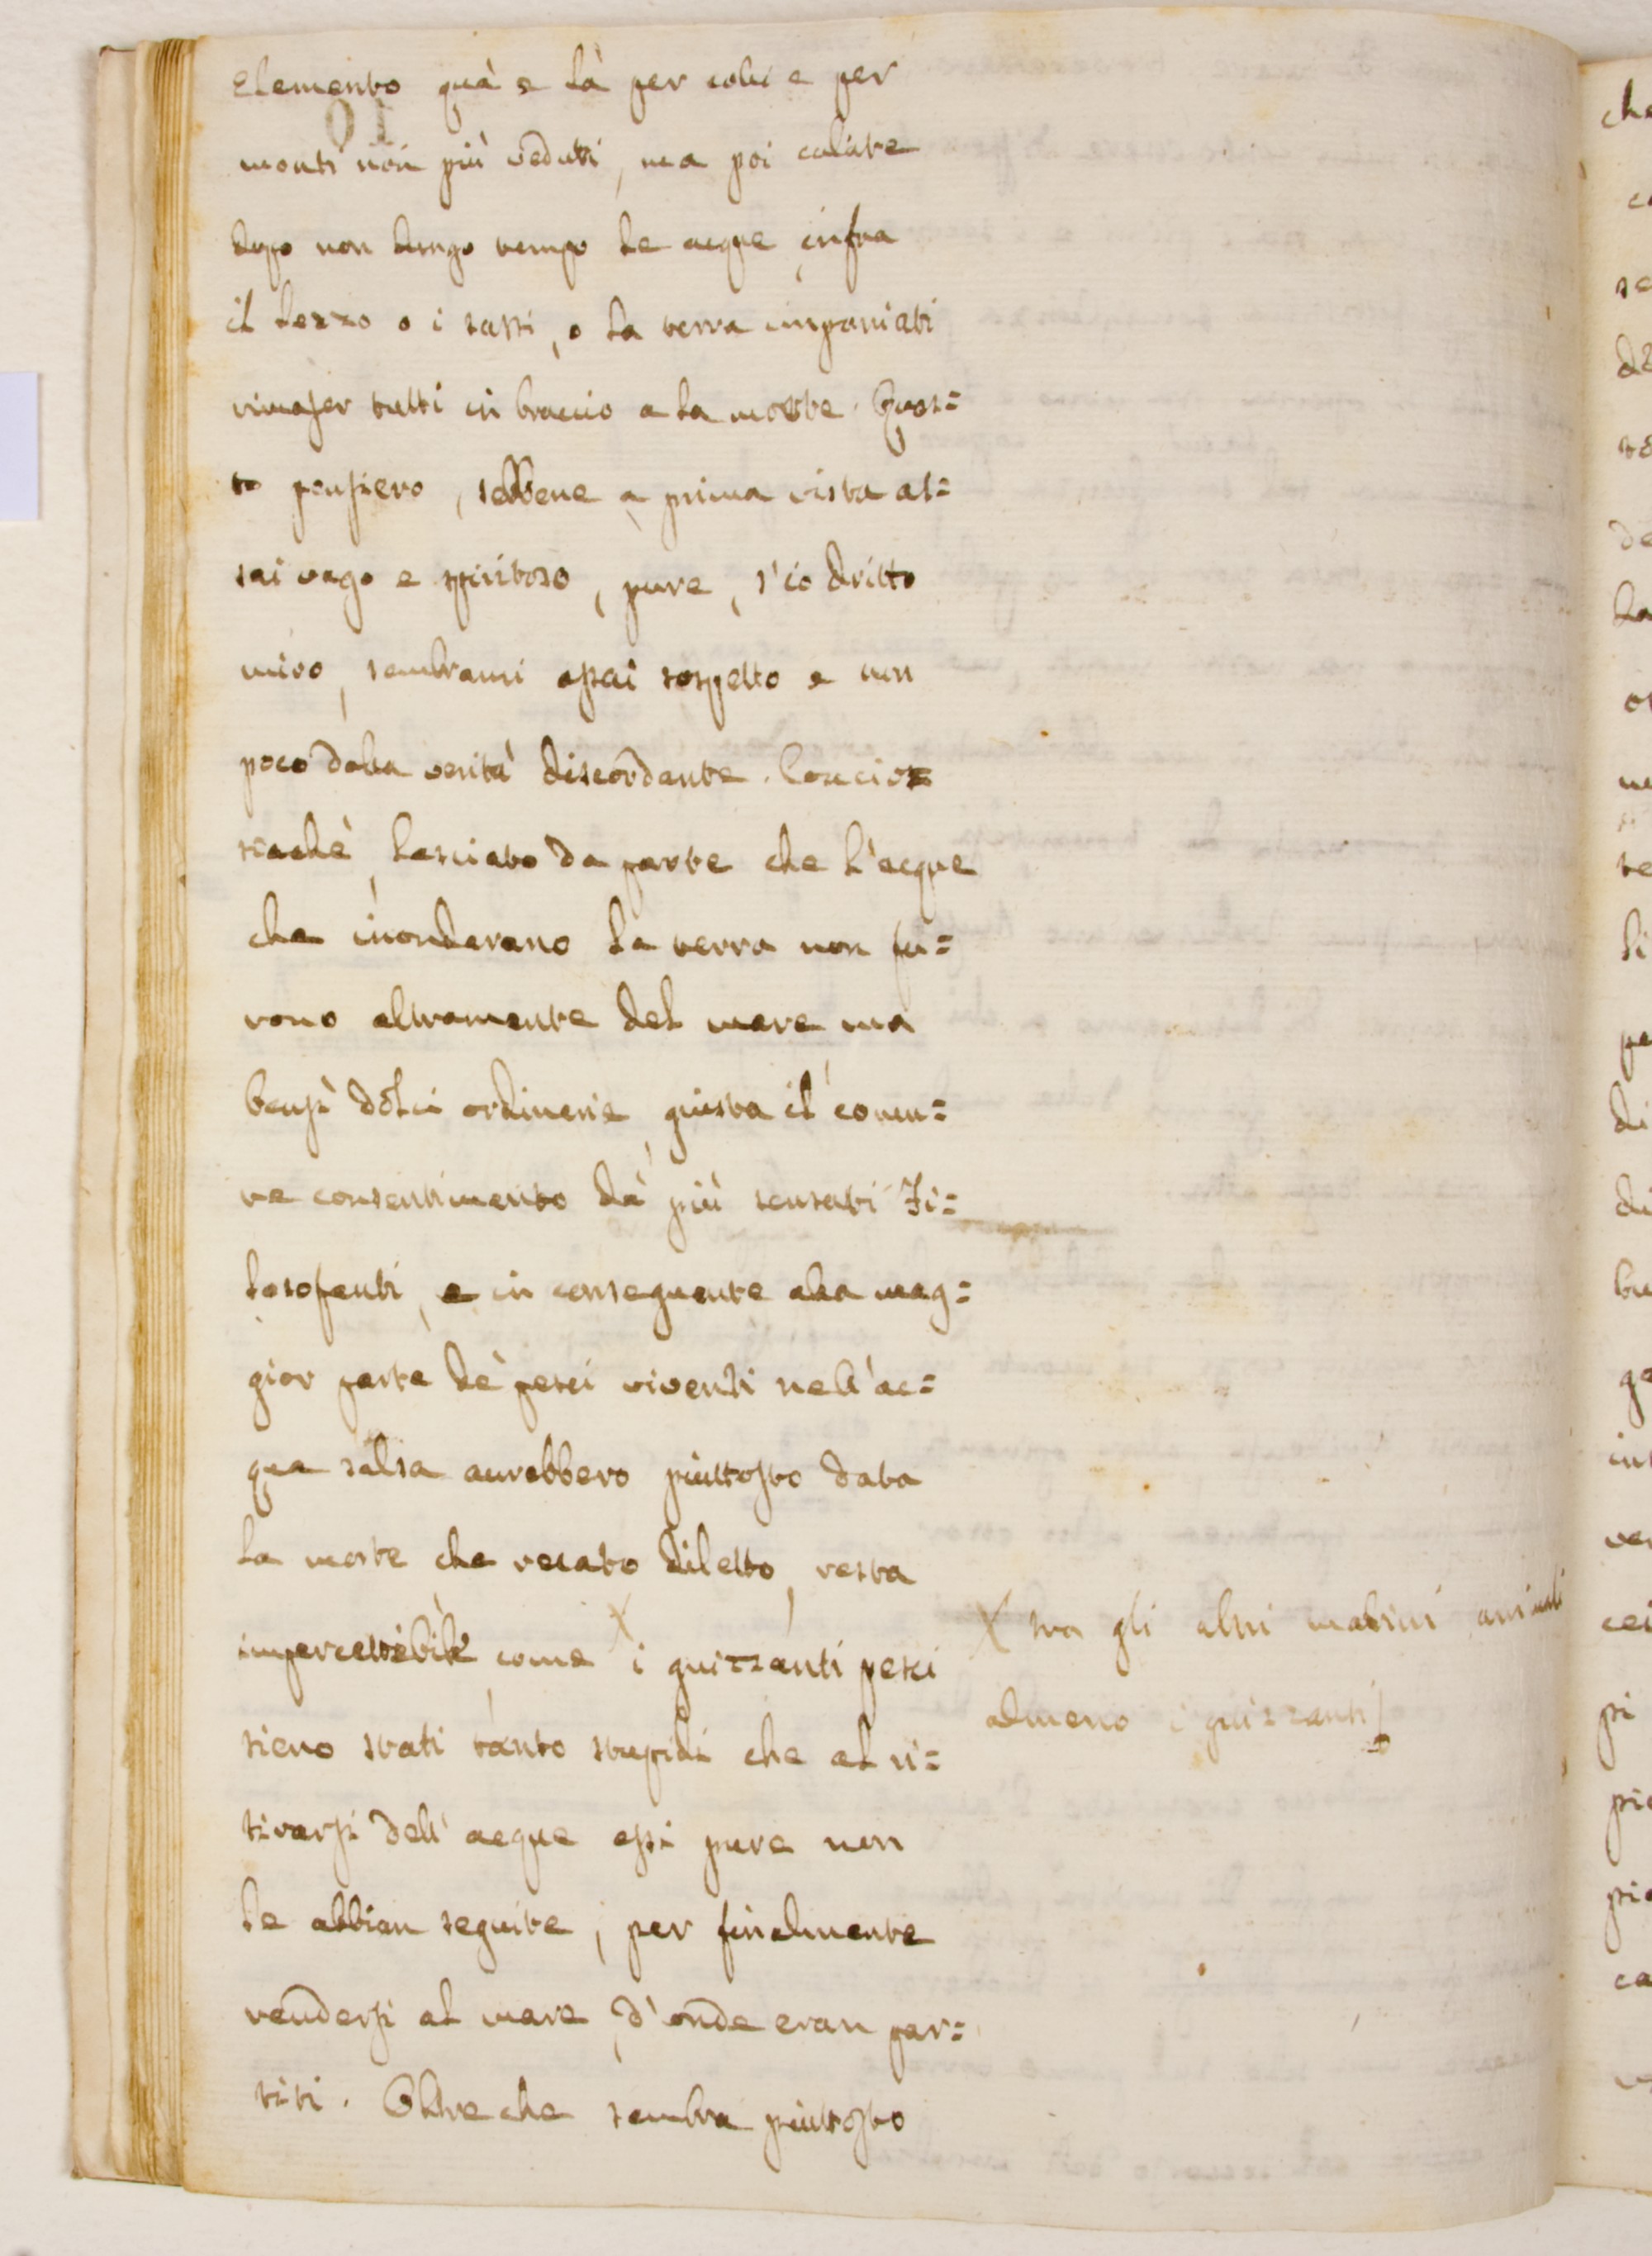 Elemento quà e là per colli e per
monti non più veduti, ma poi calate
dopo non lungo tempo le acque, infra
il lezzo o i sassi, o la terra impaniati
rimaser tutti in braccio a la morte. Ques=
to pensiero, sebbene a prima vista as=
sai vago e spiritoso, pure, s'io dritto
miro, sembrami assai sospetto e un
poco dalla verità discordante. Concios=
siachè, lasciato da parte che l'acque
che inondarano la terra non fu=
rono altramente del mare ma
bensì dolci ordinarie, giusta il comu=
ne consentimento dà più sensati Fi=
losofanti, e in conseguente alla mag=
gior parte dè pesci viventi nell'ac=
qua salsa aurebbero piuttosto data
la morte che recato diletto, resta
impercettibile come X i guizzanti pesci
sieno stati tanto stupidi che al ri=
tirarsi dell'acque essi pure non
le abbian seguite, per finalmente
rendersi al mare, d'onde eran par=
titi. Oltre che sembra piuttosto
X tra gli altri marini animali
almeno i guizzanti